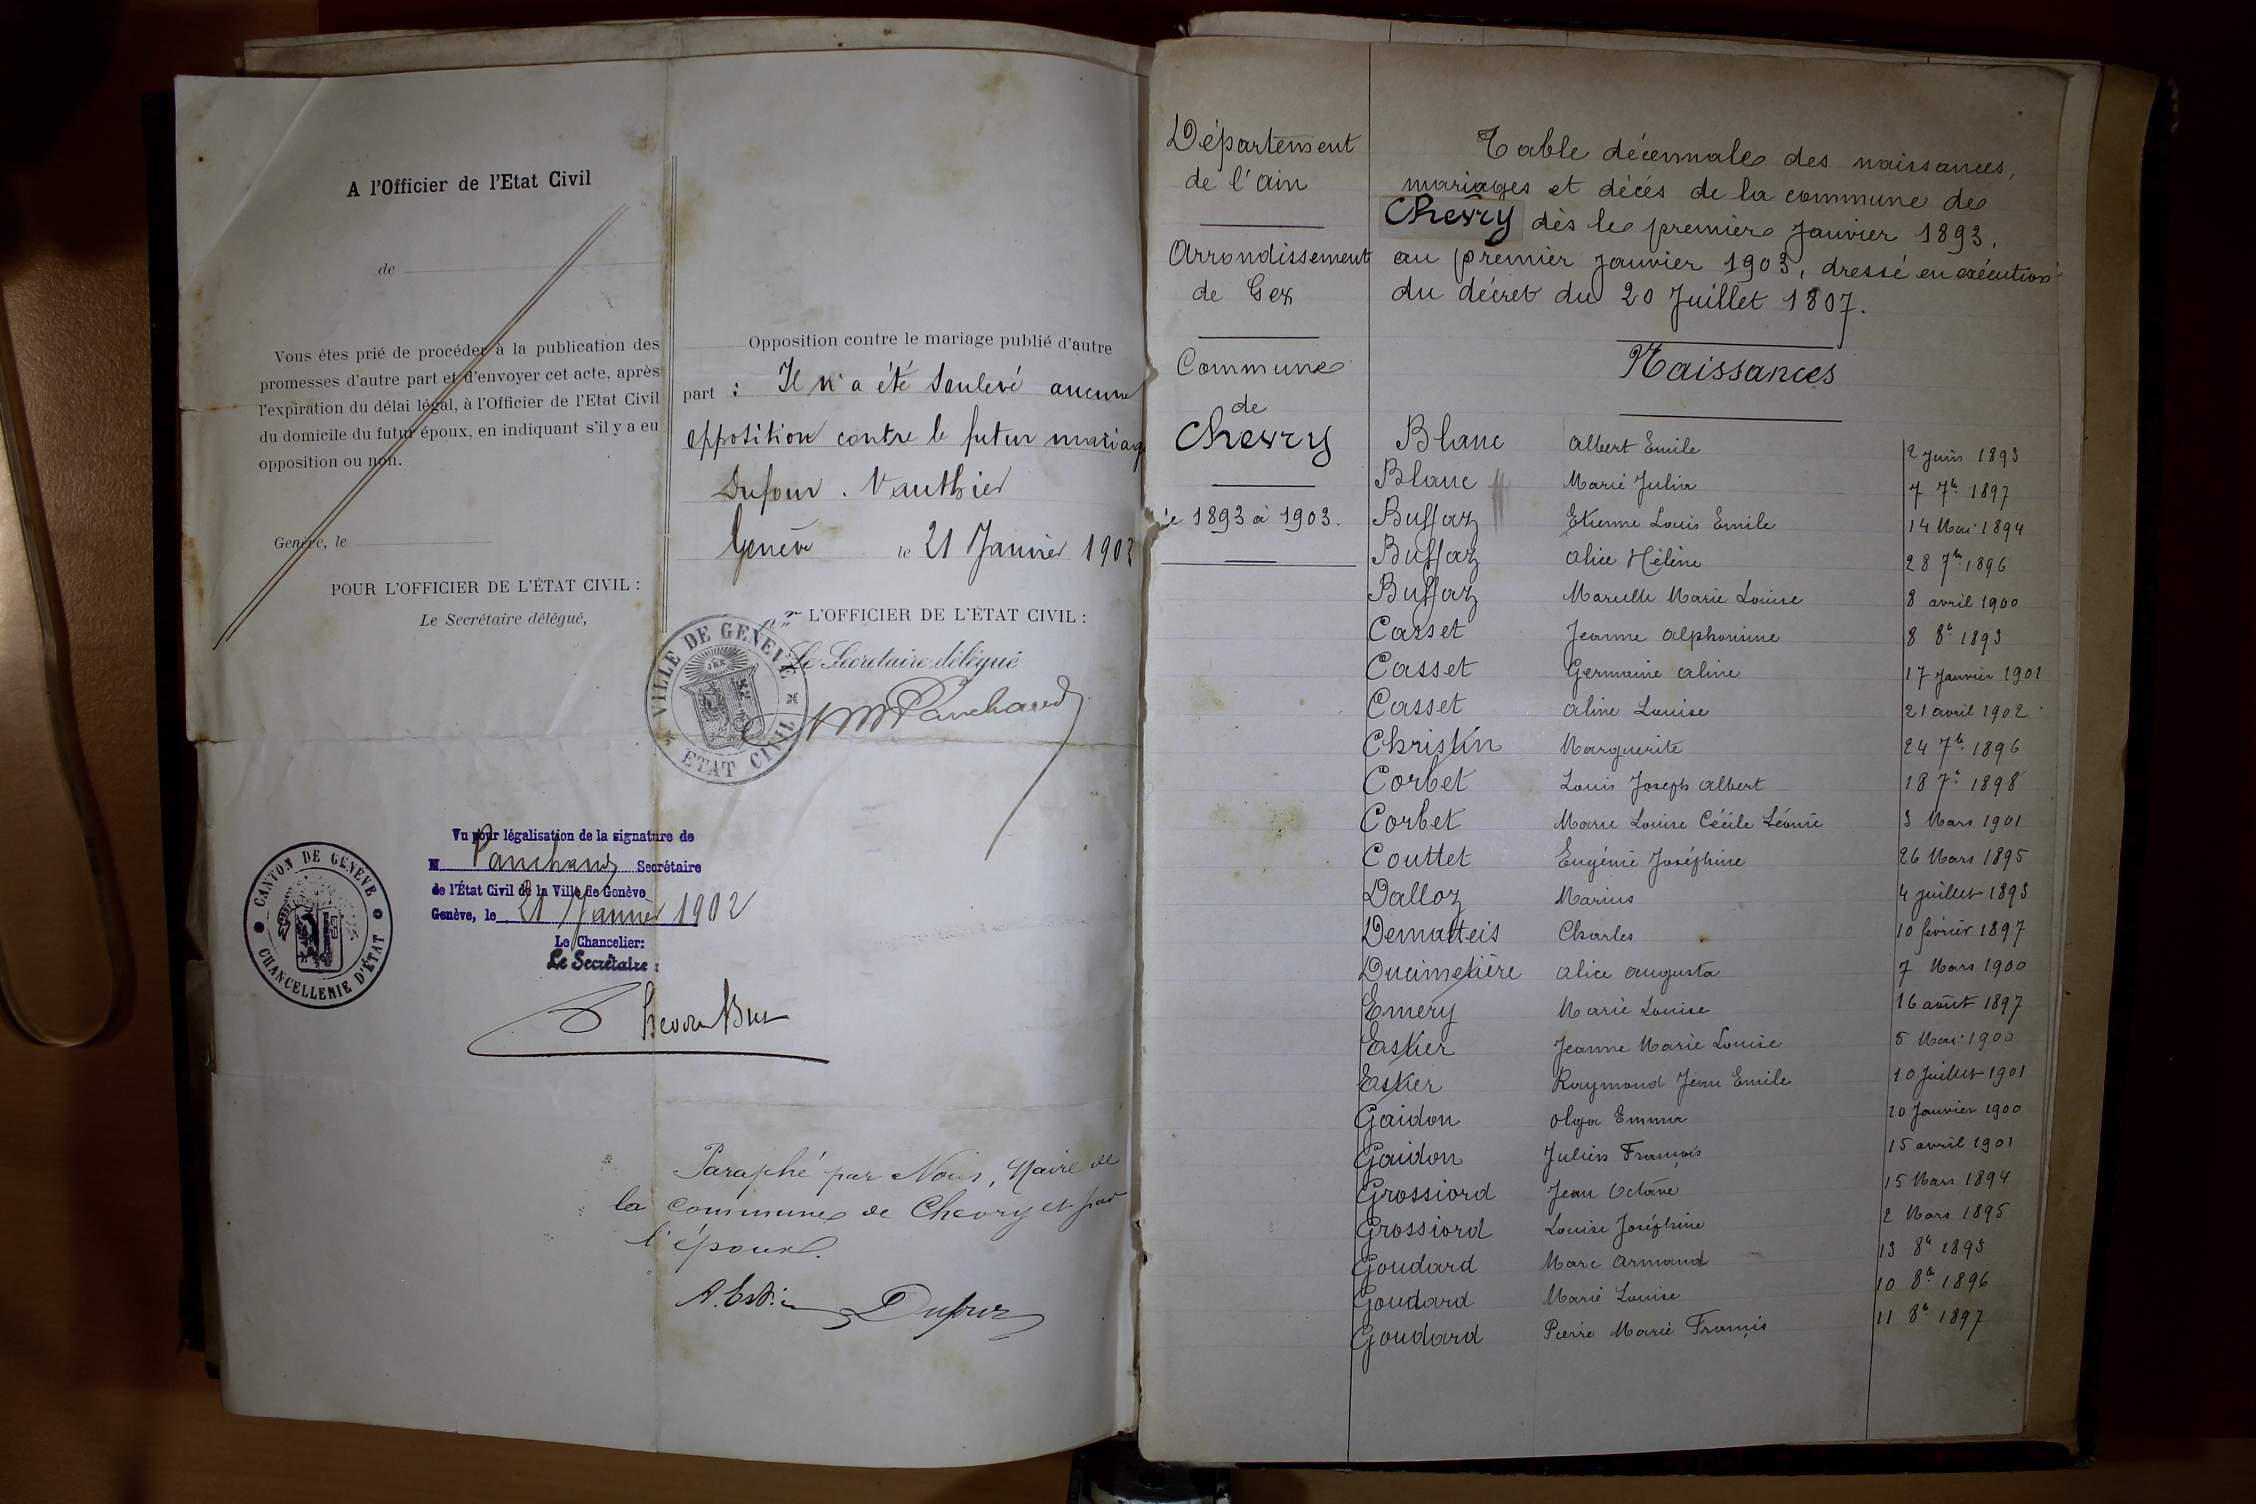 A l'Officier de l'Etat Civil
de
Vous êtes prié de procéder à la publication des
promesses d'autre part et d'envoyer cet acte, après
l'expiration du délai légal, à l'Officier de l'Etat Civil
du domicile du futur époux, en indiquant s'il y a eu
opposition ou non.
Genève, le
POUR L'OFFICIER DE L'ÉTAT CIVIL :
Le Secrétaire délégué,
Opposition contre le mariage publié d'autre
part : Il n'a été soulevé aucune
opposition contre le futur mariage
Dufour . Vauthier
Genève le 21 Janvier 1902
pr L'OFFICIER DE L'ÉTAT CIVIL :
Le Secrétaire délégué
Panchaud
VILLE DE GENÈVE
ETAT CIVIL
Vu pour légalisation de la signature de
M Panchaud Secrétaire
de l'État Civil de la Ville de Genève
Genève, le 21 Janvier 1902
Le Chancelier:
Le Secrétaire :
CANTON DE GENÈVE
CHANCELLERIE D'ÉTAT
Paraphé par Nous, Maire de
la commune de Chevry et par
l'époux.
Dufour
Département
de l'ain
Arrondissement
de Gex
Commune
de
Chevry
de 1893 à 1903.
Table décennale des naissances,
mariages et décés de la commune de
Chevry dès le premier Janvier 1893,
au premier Janvier 1903, dressé en exécution
du décret du 20 Juillet 1807.
Naissances
Blanc Albert Emile 2 Juin 1893
Blanc Marie Julia 7 7bre 1897
Buffaz Etienne Louis Emile 14 Mai 1894
Buffaz Alice Hélène 28 7bre 1896
Buffaz Marcelle Marie Louise 8 avril 1900
Casset Jeanne Alphonsine 8 8bre 1893
Casset Germaine Aline 17 Janvier 1901
Casset Aline Louise 21 avril 1902
Christin Marguerite 24 7bre 1896
Corbet Louis Joseph Albert 18 7bre 1898
Corbet Marie Louise Cécile Léonie 3 Mars 1901
Couttet Eugénie Joséphine 26 Mars 1895
Dalloz Marius 4 juillet 1893
Dematteis Charles 10 février 1897
Ducimetière Alice Augusta 7 Mars 1900
Emery Marie Louise 16 août 1897
Estier Jeanne Marie Louise 5 Mai 1900
Estier Raymond Jean Emile 10 Juillet 1901
Gaidon Olga Emma 20 Janvier 1900
Gaidon Julien François 15 avril 1901
Grossiord Jean Octave 15 Mars 1894
Grossiord Louise Joséphine 2 Mars 1895
Goudard Marc Armand 13 8bre 1895
Goudard Marie Louise 10 8bre 1896
Goudard Pierre Marie François 11 8bre 1897